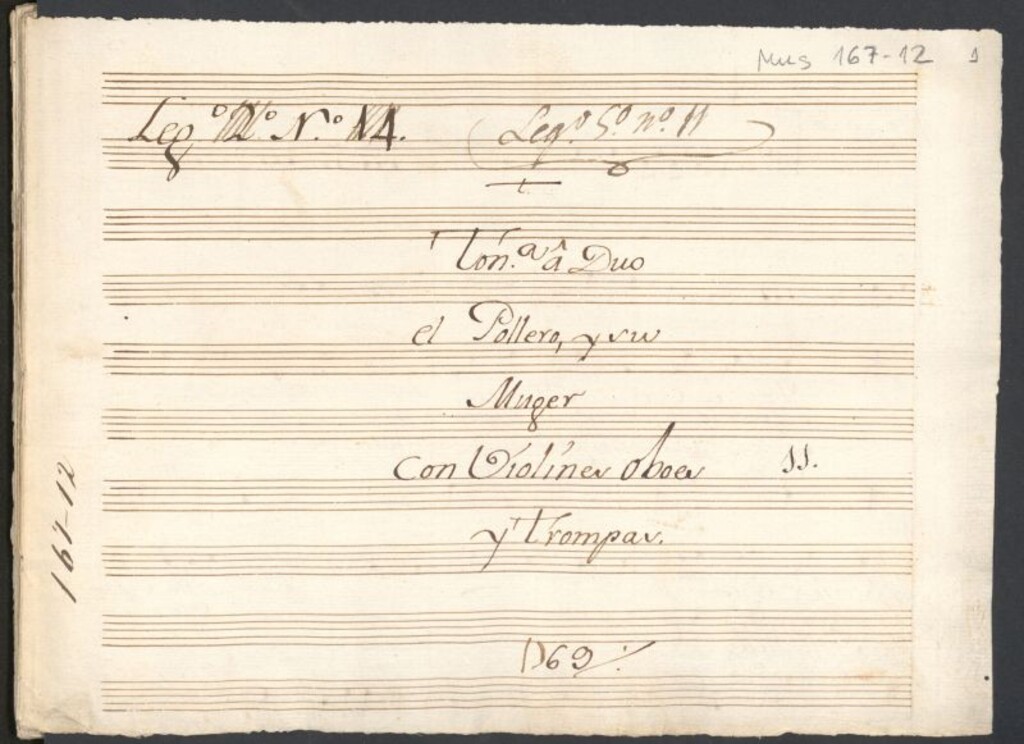 Mus 167-12 1
Leg.º Nº 14. Legº. 5º. nº. 11
Ton.ª â Duo
el Pollero, y su
Muger
Con Violines Oboes 11.
y Trompas.
1769
167-12